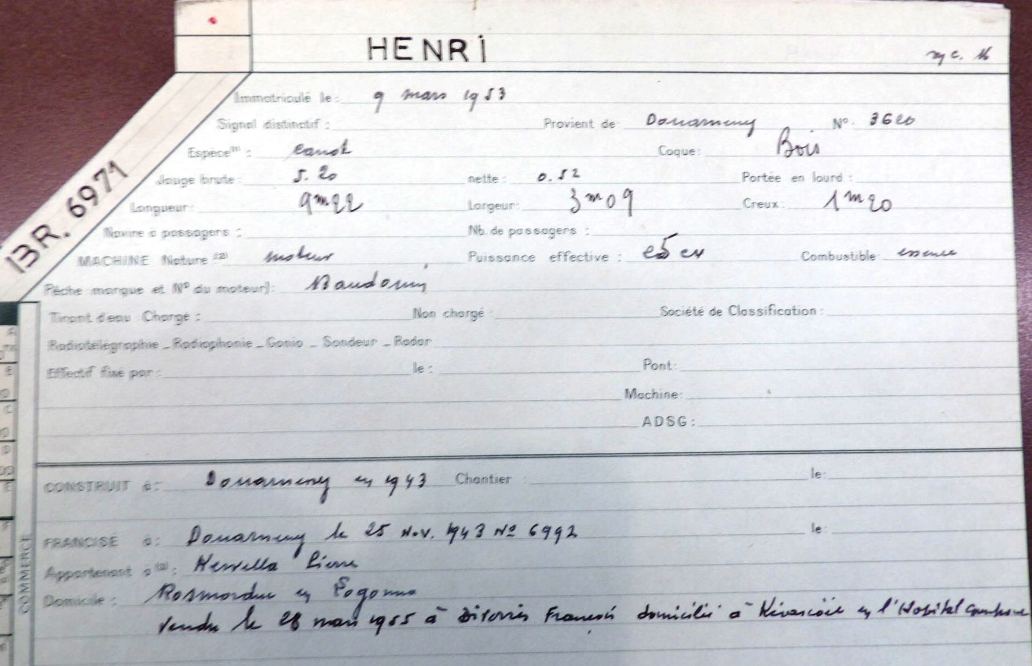 HENRI
BR. 6971
Immatriculé le : 9 mars 1953
Signal distinctif : Provient de Douarnenez N°. 3620
Espèce(1) : canot Coque : Bois
Jauge brute : 5.20 nette : 0.52 Portée en lourd :
Longueur : 9m22 Largeur : 3m09 Creux : 1m20
Navire à passagers : Nb. de passagers :
MACHINE Nature (2) moteur Puissance effective : 25 cv Combustible essence
Pêche marque et N° du moteur) : Baudouin
Tirant d'eau Chargé : Non chargé : Société de Classification :
Radiotélégraphie _ Radiophonie _ Gonio _ Sondeur _ Radar
Effectif fixé par : le : Pont :
Machine :
ADSG :
CONSTRUIT à : Douarnenez en 1943 Chantier : le :
FRANCISÉ à : Douarnenez le 25 Nov. 1943 N° 6992 le :
Appartenant à (3) : Kervella Pierre
Domicile : Rosmordu en Logonna
Vendu le 28 mars 1955 à François domicilié à en l'Hopital Camfrout
COMMERCE